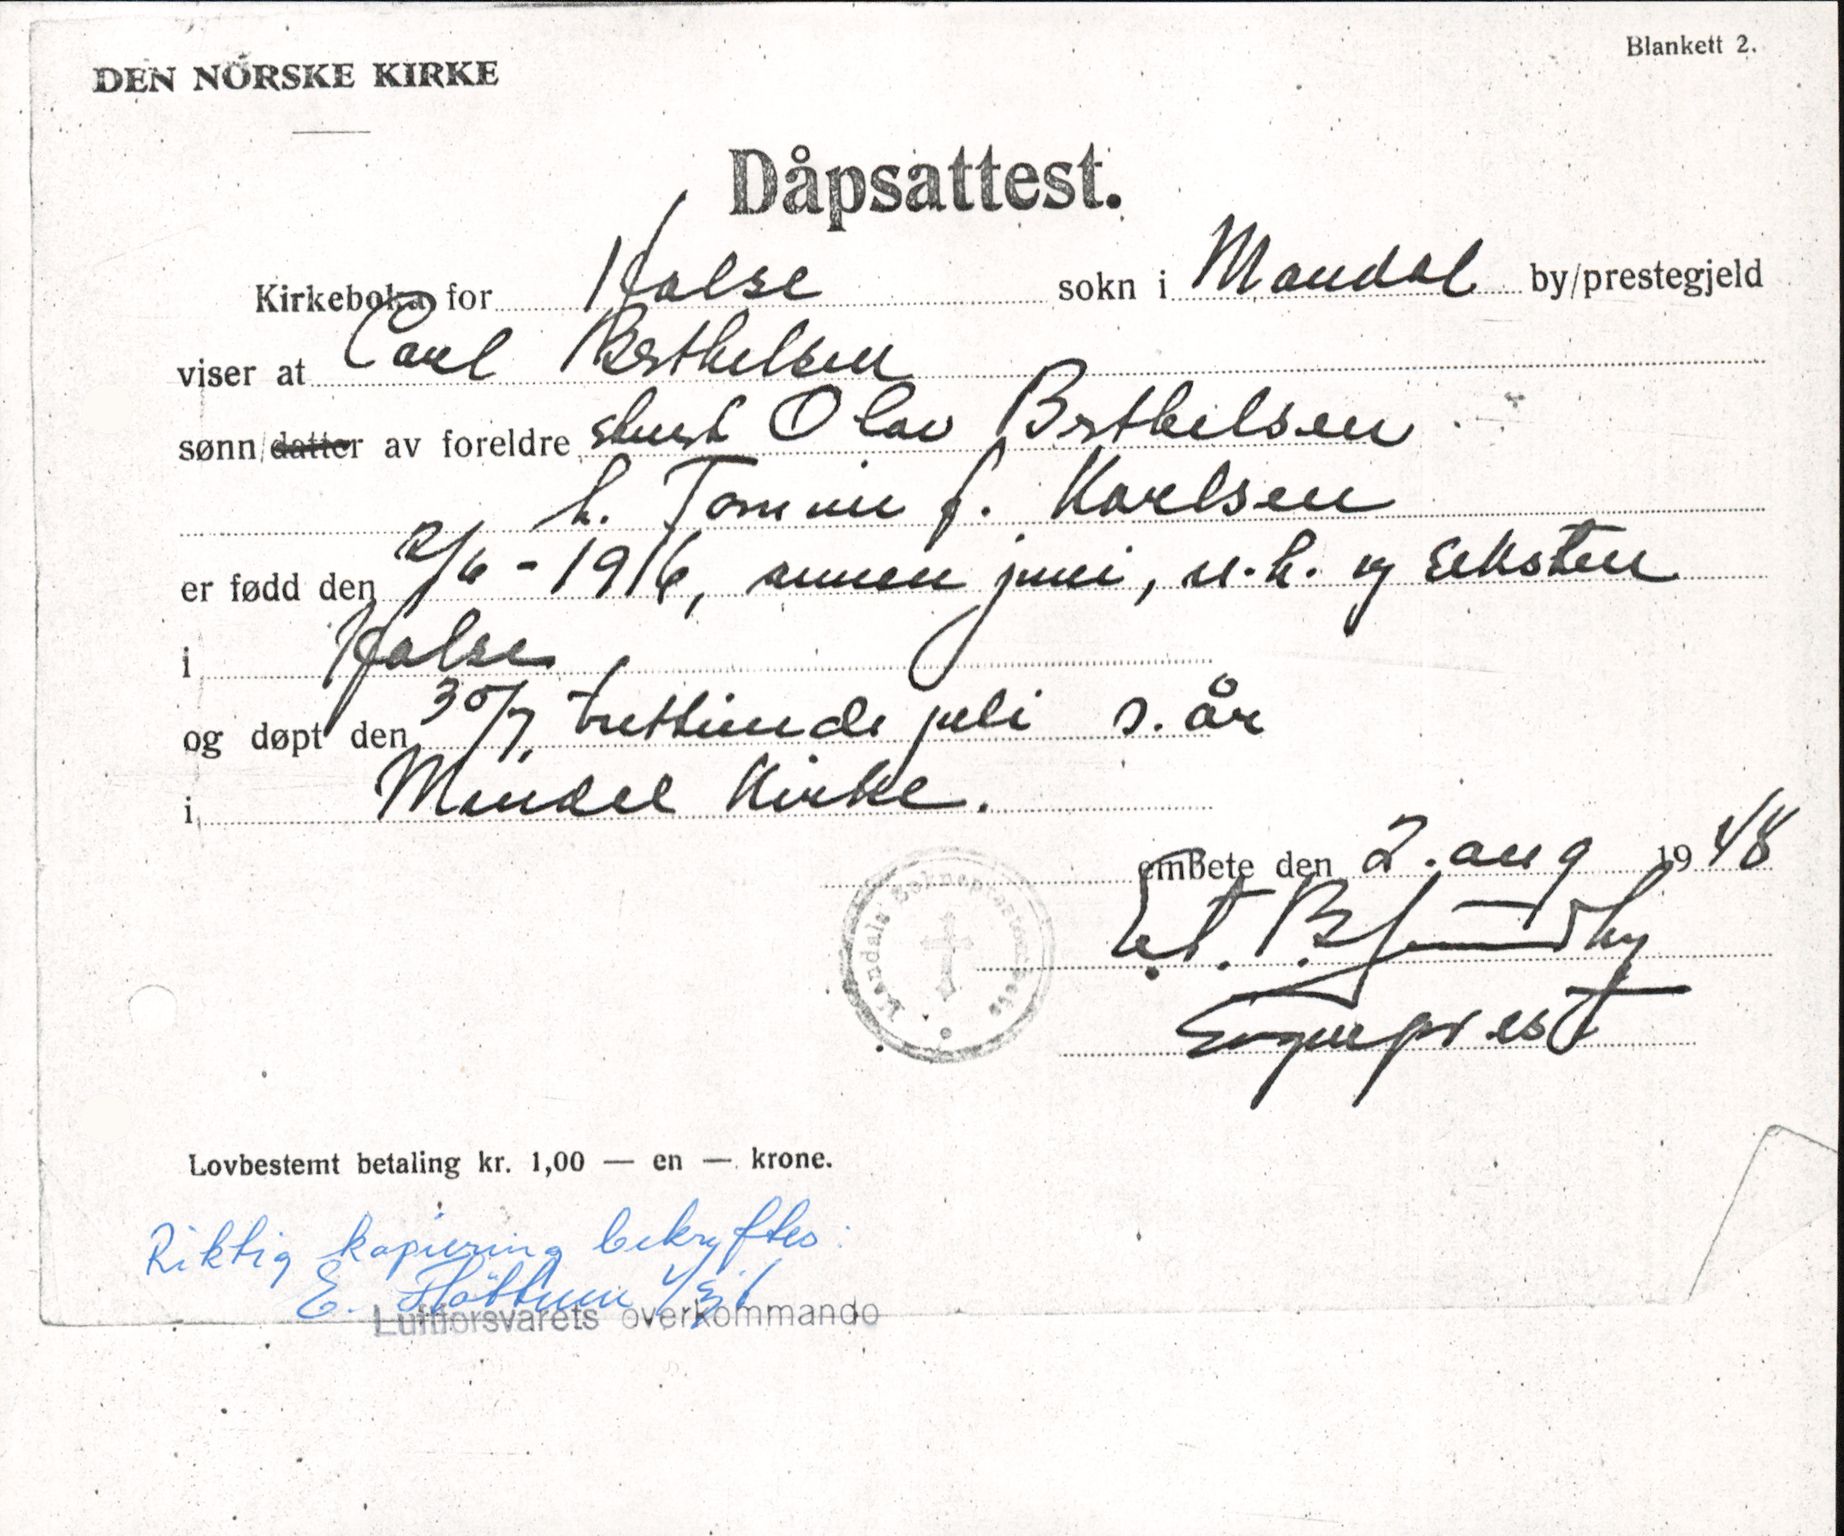 Blankett 2.
DEN NORSKE KIRKE
Dåpsattest.
Kirkeboka for Halse sokn i Mandal by/prestegjeld
viser at Carl Berthelsen
sønn/datter av foreldre Olav Berthelsen
h. Tomine f. Karlsen
er fødd den 2/6 - 1916, annen juni, n.h. og seksten
i Halse
og døpt den 30/7 trettiende juli s. år
i Mandal Kirke.
embete den 2. aug 1948
Mandals Sokneprestembete
e.t. B.
Sogneprest
Lovbestemt betaling kr. 1,00 — en — krone.
Riktig kopiering bekreftes:
E.
Luftforsvarets overkommando